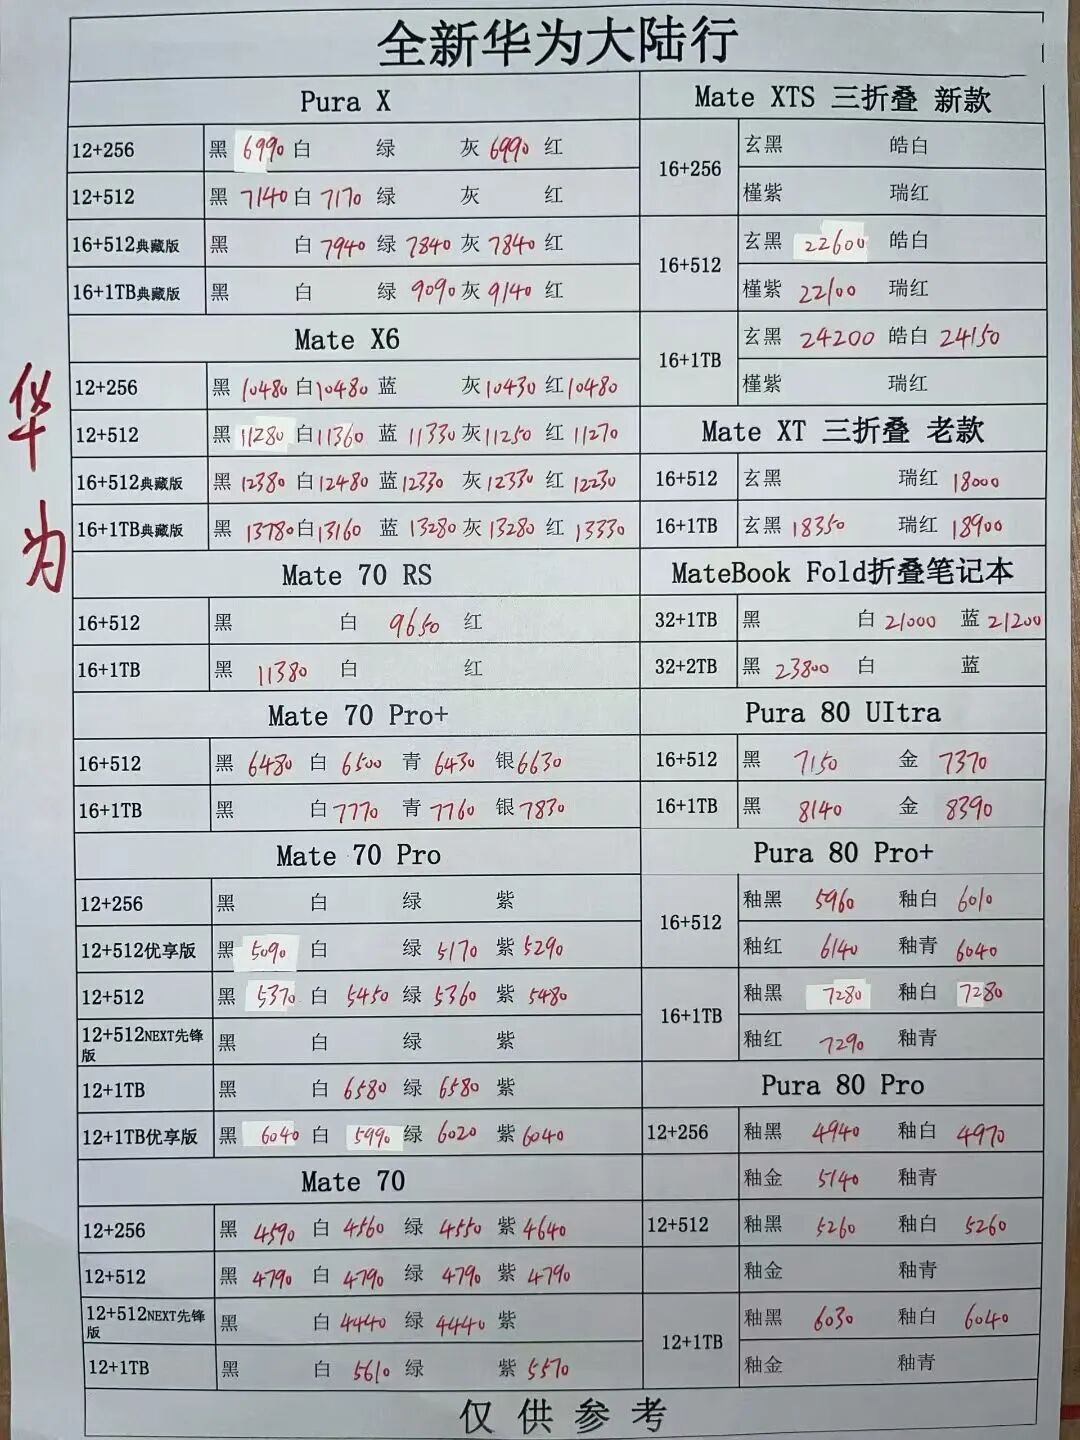 全新华为大陆行
华为
Pura X
12+256 黑 6990 白 绿 灰 6990 红
12+512 黑 7140 白 7170 绿 灰 红
16+512典藏版 黑 白 7940 绿 7840 灰 7840 红
16+1TB典藏版 黑 白 绿 9090 灰 9140 红
Mate X6
12+256 黑 10480 白 10480 蓝 灰 10430 红 10480
12+512 黑 11280 白 11360 蓝 11330 灰 11250 红 11270
16+512典藏版 黑 12380 白 12480 蓝 12330 灰 12330 红 12230
16+1TB典藏版 黑 13780 白 13160 蓝 13280 灰 13280 红 13330
Mate 70 RS
16+512 黑 白 9650 红
16+1TB 黑 11380 白 红
Mate 70 Pro+
16+512 黑 6480 白 6500 青 6430 银 6630
16+1TB 黑 白 7770 青 7760 银 7830
Mate 70 Pro
12+256 黑 白 绿 紫
12+512优享版 黑 5090 白 绿 5170 紫 5290
12+512 黑 5370 白 5450 绿 5360 紫 5480
12+512NEXT先锋版 黑 白 绿 紫
12+1TB 黑 白 6580 绿 6580 紫
12+1TB优享版 黑 6040 白 5990 绿 6020 紫 6040
Mate 70
12+256 黑 4590 白 4560 绿 4550 紫 4640
12+512 黑 4790 白 4790 绿 4790 紫 4790
12+512NEXT先锋版 黑 白 4440 绿 4440 紫
12+1TB 黑 白 5610 绿 紫 5570
Mate XTS 三折叠 新款
16+256 玄黑 皓白
槿紫 瑞红
16+512 玄黑 22600 皓白
槿紫 22100 瑞红
16+1TB 玄黑 24200 皓白 24150
槿紫 瑞红
Mate XT 三折叠 老款
16+512 玄黑 瑞红 18000
16+1TB 玄黑 18350 瑞红 18900
MateBook Fold折叠笔记本
32+1TB 黑 白 21000 蓝 21200
32+2TB 黑 23800 白 蓝
Pura 80 UItra
16+512 黑 7150 金 7370
16+1TB 黑 8140 金 8390
Pura 80 Pro+
16+512 釉黑 5960 釉白 6010
釉红 6140 釉青 6040
16+1TB 釉黑 7280 釉白 7280
釉红 7290 釉青
Pura 80 Pro
12+256 釉黑 4940 釉白 4970
釉金 5140 釉青
12+512 釉黑 5260 釉白 5260
釉金 釉青
12+1TB 釉黑 6030 釉白 6040
釉金 釉青
仅供参考